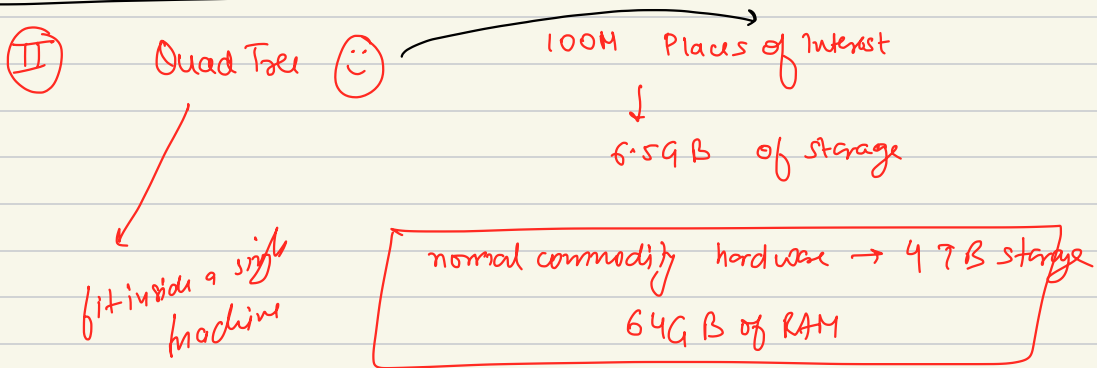 II Quad Tree 100M Places of Interest
6.5GB of storage
fit inside a single
machine
normal commodity hardware → 4 TB storage
64GB of RAM